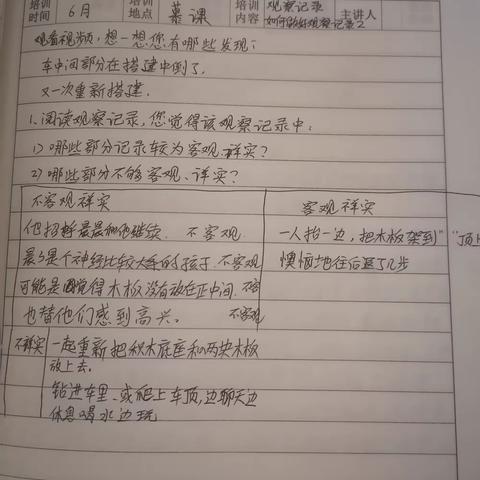 培训时间 6月 培训地点 慕课 培训内容 观察记录 如何做好观察记录2 主讲人
观看视频，想一想您有哪些发现？
车中间部分在搭建中倒了。
又一次重新搭建.
1.阅读观察记录,您觉得该观察记录中:
1)哪些部分记录较为客观、详实?
2)哪些部分不够客观、详实?
不客观祥实 客观祥实
他招呼晨晨和他继续. 不客观. 一人抬一边,把木板架到"
晨晨是个神经比较大条的孩子.不客观 懊恼地往后退了几步
可能是觉得木板没有放在正中间. 不客
也替他们感到高兴。 不客观
不祥实 一起重新把积木底座和两块木板
放上去。
钻进车里、或爬上车顶,边聊天边
休息喝水边玩